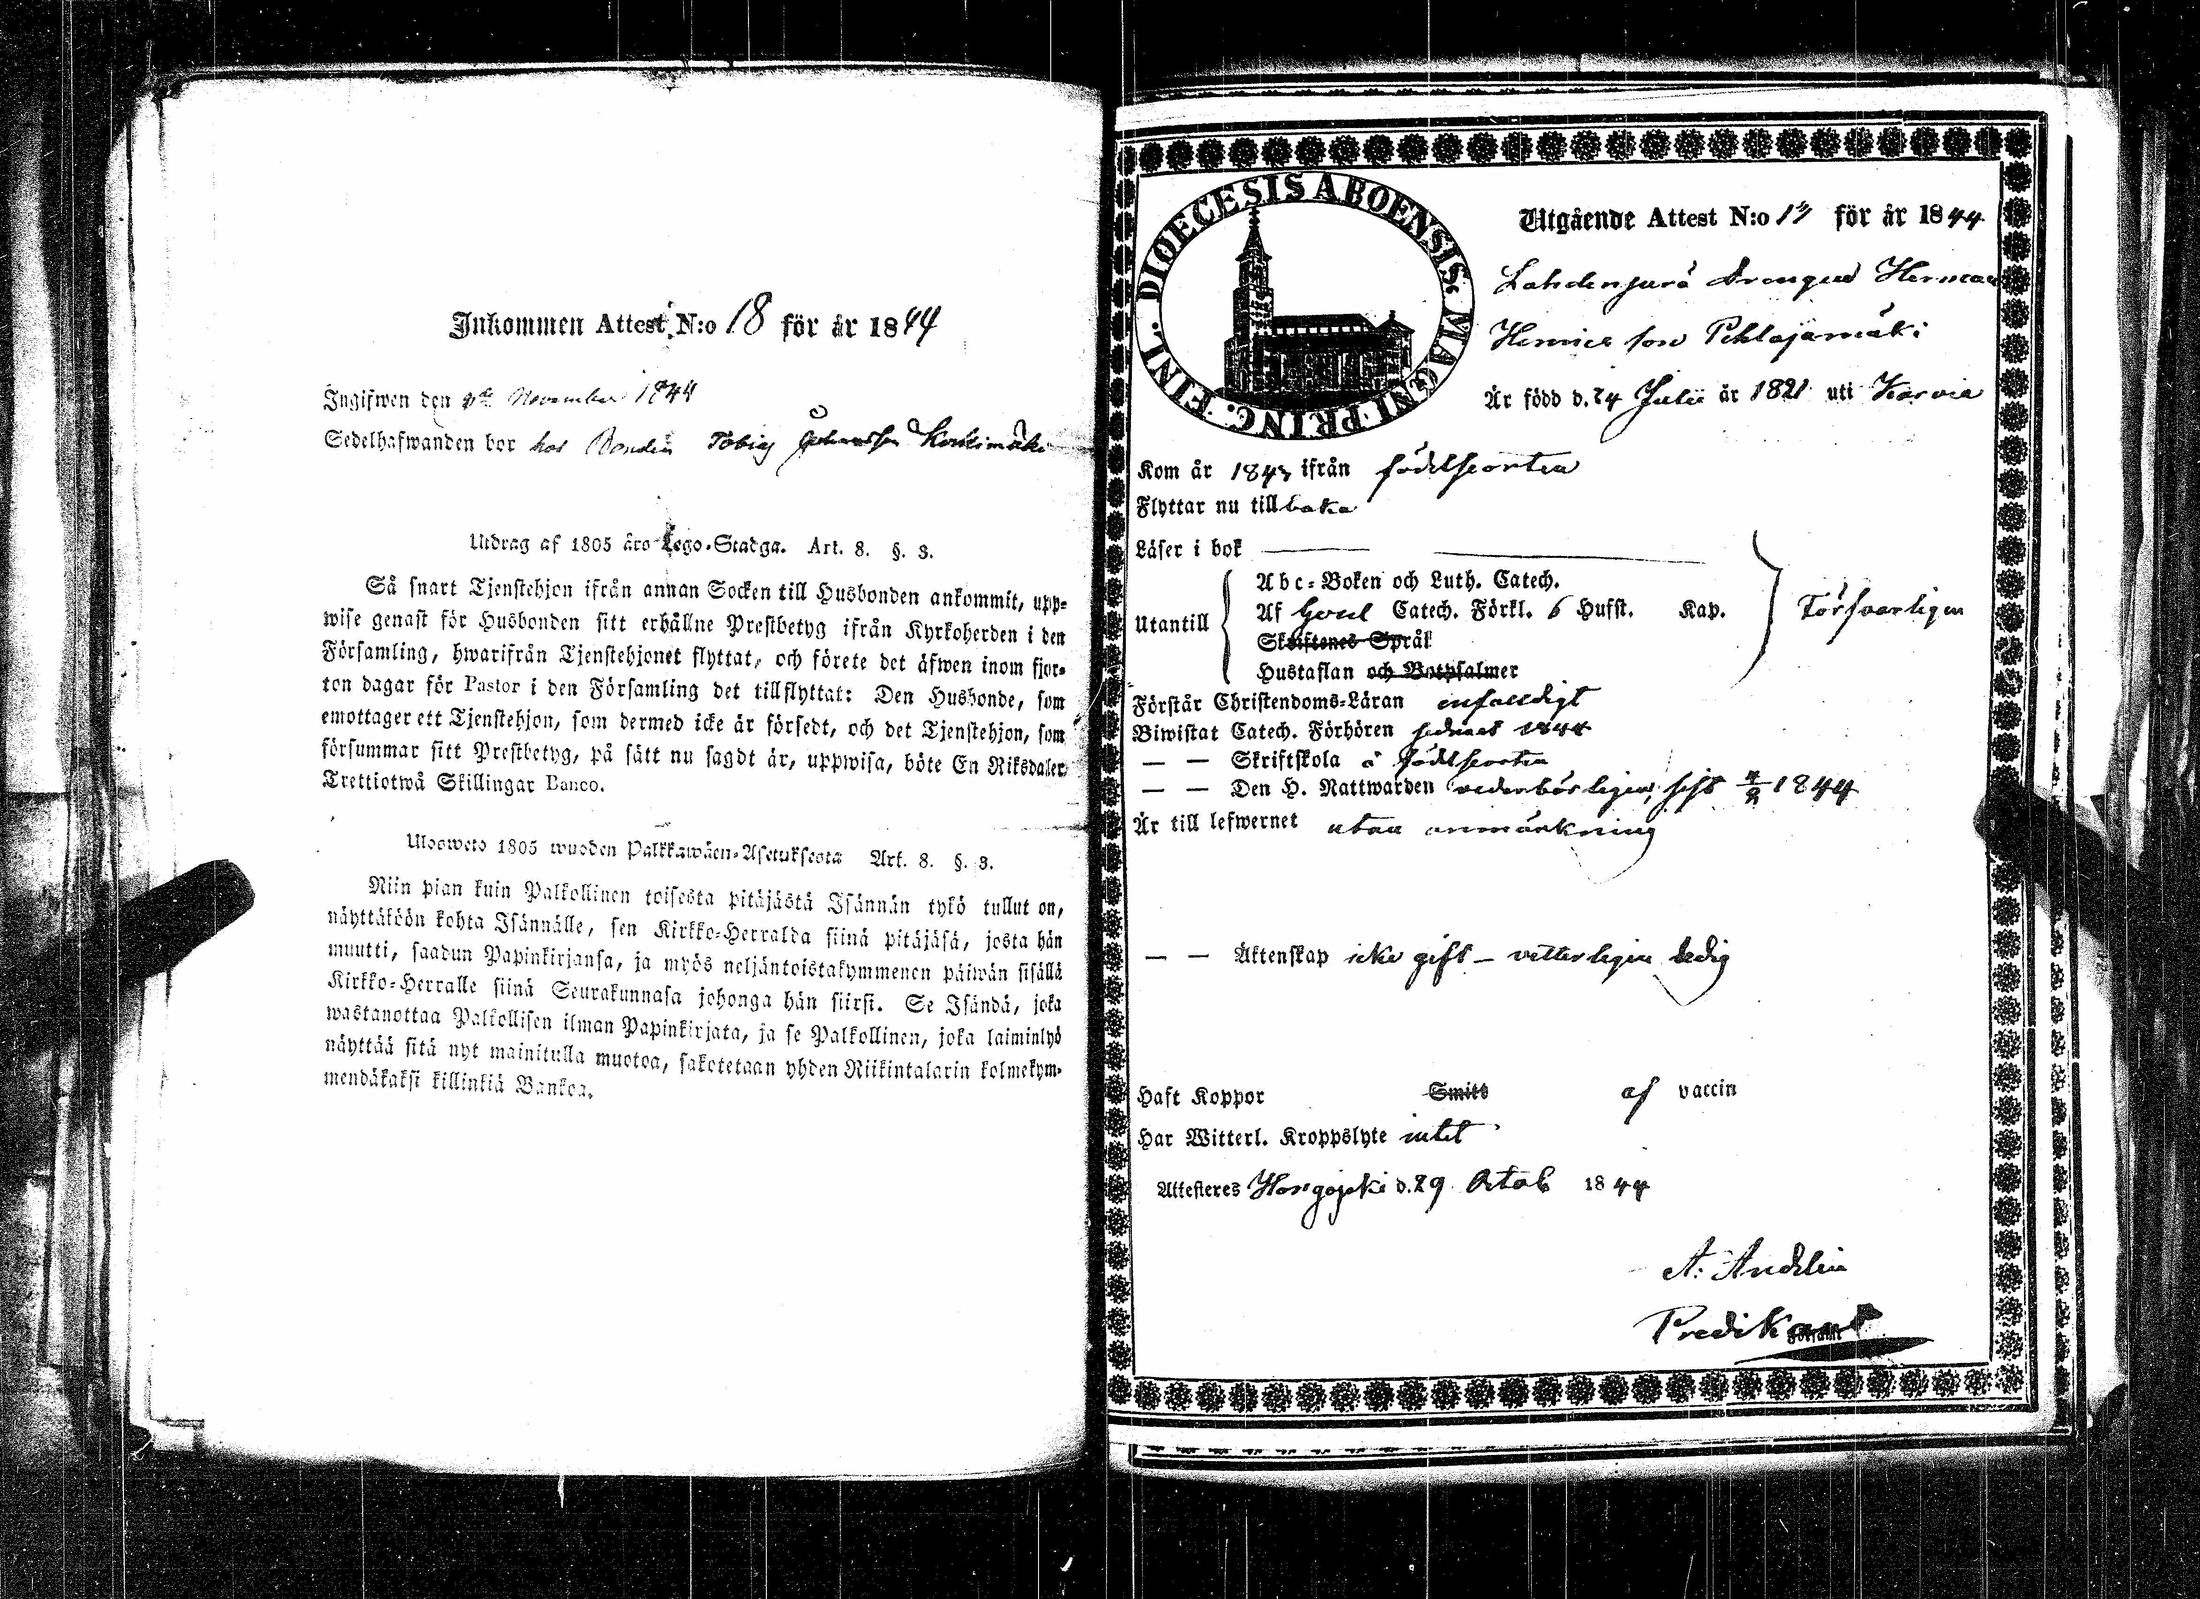 Inkommen Attest N:o 18 för år 1844
Ingifwen den November 1844
Sedelhafwanden bor hos Bonden Tobias Johansson
Utdrag af 1805 års Lego-Stadga. Art. 8. §. 3.
Så snart Tjenstehjon ifrån annan Socken till Husbonden ankommit, upp-
wise genast för Husbonden sitt erhållne Prestbetyg ifrån Kyrkoherden i den
Församling, hwarifrån Tjenstehjonet flyttat, och förete det äfwen inom fjor-
ton dagar för Pastor i den Församling det tillflyttat: Den Husbonde, som
emottager ett Tjenstehjon, som dermed icke är försedt, och det Tjenstehjon, som
försummar sitt Prestbetyg, på sätt nu sagdt är, uppwisa, böte En Riksdaler
Trettiotwå Skillingar Banco.
Ulosweto 1805 wuoden Palkkawäen-Asetuksesta Art. 8. §. 3.
Niin pian kuin Palkollinen toisesta pitäjästä Isännän tykö tullut on,
näyttäköön kohta Isännälle, sen Kirkko-Herralda siinä pitäjäsä, josta hän
muutti, saadun Papinkirjansa, ja myös neljäntoistakymmenen päiwän sisällä
Kirkko-Herralle siinä Seurakunnasa johonga hän siirsi. Se Isändä, joka
wastanottaa Palkollisen ilman Papinkirjata, ja se Palkollinen, joka laiminlyö
näyttää sitä nyt mainitulla muotoa, sakotetaan yhden Riikintalarin kolmekym-
mendäkaksi killinkiä Bankoa.
DIOECESIS ABOENSIS. MAGNI PRINC. FINL.
Utgående Attest N:o 17 för år 1844
Drengen Herman
Henrics son Pehlajamäki
Är född d. 24 Julii år 1821 uti Karvia
Kom år 1843 ifrån födelseorten
Flyttar nu tillbaka
Läser i bok
Utantill
Abc-Boken och Luth. Catech.
Af Catech. Förkl. 6 Hufst. Kap. Försvarligen
Skriftenes Språk
Hustaflan och Botpsalmer
Förstår Christendoms-Läran enfaldigt
Biwistat Catech. Förhören sednast 1844
— — Skriftskola å födelseorten
— — Den H. Nattwarden vederbörligen, sist 1844
Är till lefwernet utan anmärkning
— — Äktenskap icke gift – vetterligen ledig
Haft Koppor Smitt af vaccin
Har Witterl. Kroppslyte intet
Attesteres Hongojoki d. 29 Octob 1844
A. Andelin
Predikant